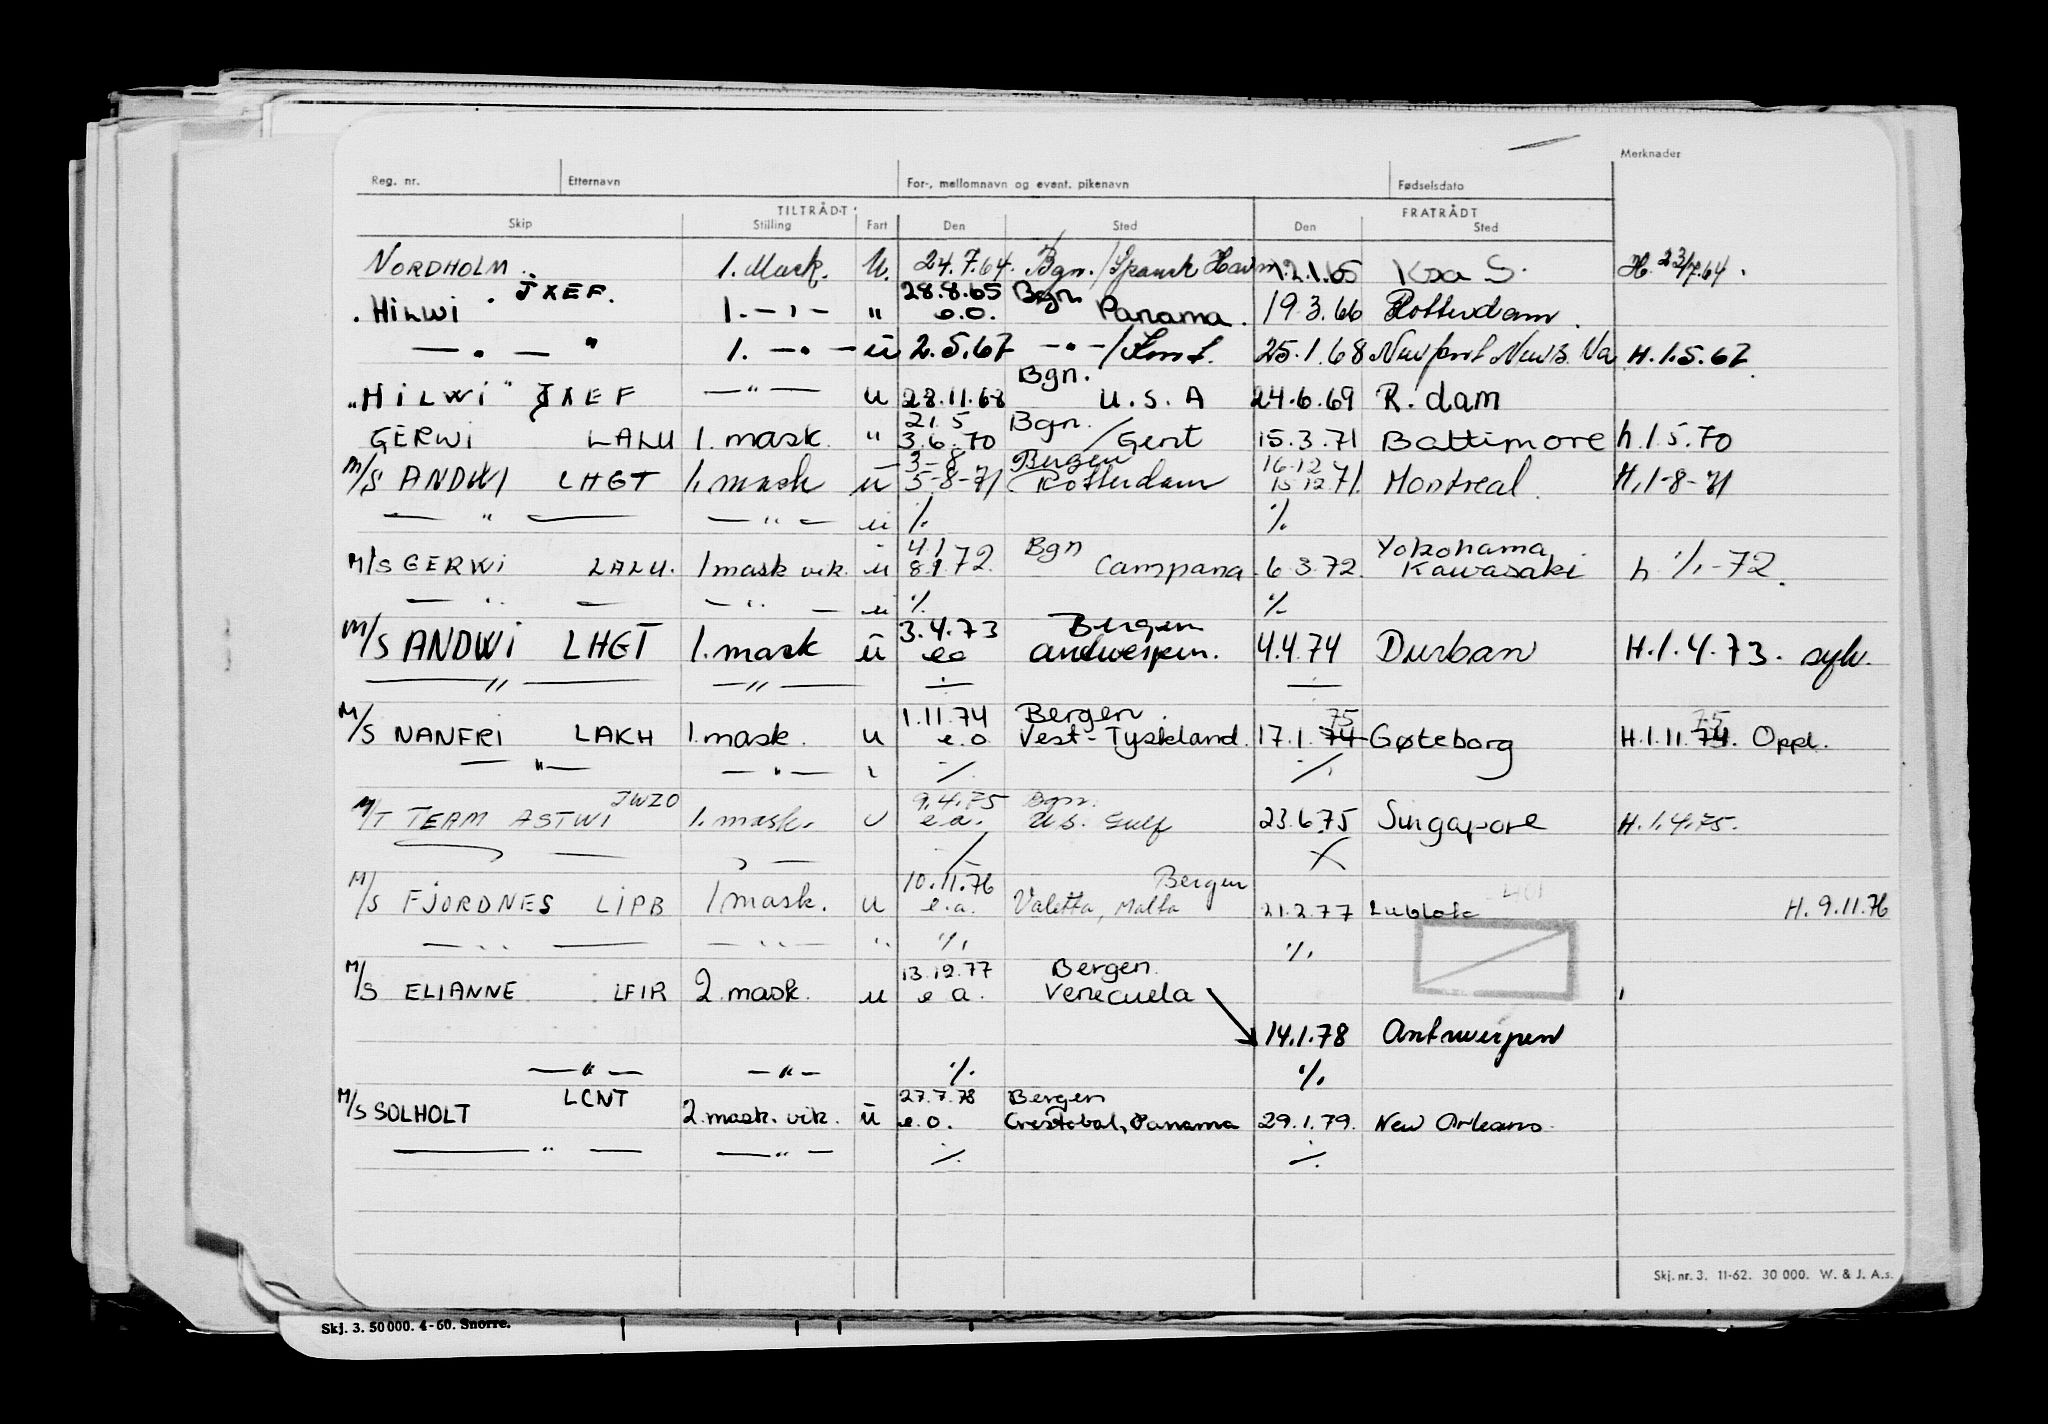 Merknader
Reg. nr. Etternavn For-, mellomnavn og event. pikenavn Fødselsdato
TILTRÅDT FRATRÅDT
Skip Stilling Fart Den Sted Den Sted
NORDHOLM 1. Mask. U. 24.7.64. Bgn./Spansk Havn 12.1.65 H. 23/7.64.
JXEF. 28.8.65 Bgn
HILWI 1. -"- " e.o. Panama. 19.3.66 Rotterdam.
— " — " 1. —"— u 2.5.67 -"-/ 25.1.68 Newport News. Va H.1.5.67.
Bgn.
"HILWI" JXEF —"— u 28.11.68 U.S.A 24.6.69 R.dam
21.5 Bgn.
GERWI LALU 1. mask. " 3.6.70 /Gent 15.3.71 Baltimore h.1.5.70
3-8 Bergen 16.12
M/S ANDWI LHGT 1. mask u 5-8-71 Rotterdam 15.12.71. Montreal. H.1-8-71
— " — — " — u ./. ./.
4.1 Bgn Yokohama
M/S GERWI LALU. 1 mask vik. u 8.1.72. Campana 6.3.72. Kawasaki h 1/1-72.
— " — — " — u ./. ./.
3.4.73 Bergen
M/S ANDWI LHGT 1. mask u eo antwerpen. 4.4.74 Durban H.1.4.73. sylv.
— " — — " — ÷ ÷
M/S 1.11.74 Bergen. 75 75
NANFRI LAKH 1. mask. u e.o Vest-Tyskland. 17.1.74 Gøteborg H.1.11.74. Oppl.
— " — — " — ./. ./.
JWZO 9.4.75 Bgn.
M/T TEAM ASTWI 1. mask. u e.a. US. Gulf 23.6.75 Singapore H.1.4.75.
M/S 10.11.76 Bergen
FJORDNES LIPB 1 mask. u e.a. Valetta, Malta 21.2.77 H. 9.11.76
— " — — " — " ./. ./.
M/S 13.12.77 Bergen.
ELIANNE LFIR 2. mask. u e a. Venecuela
14.1.78 Antwerpen
— " — — " — ./. ./.
LCNT 27.7.78 Bergen
M/S SOLHOLT 2. mask. vik. u e.o. Crestobal, Panama 29.1.79. New Orleans.
— " — — " — ./. ./.
Skj. nr. 3. 11-62. 30 000. W. & J. A.s.
Skj. 3. 50 000. 4-60. Snorre.